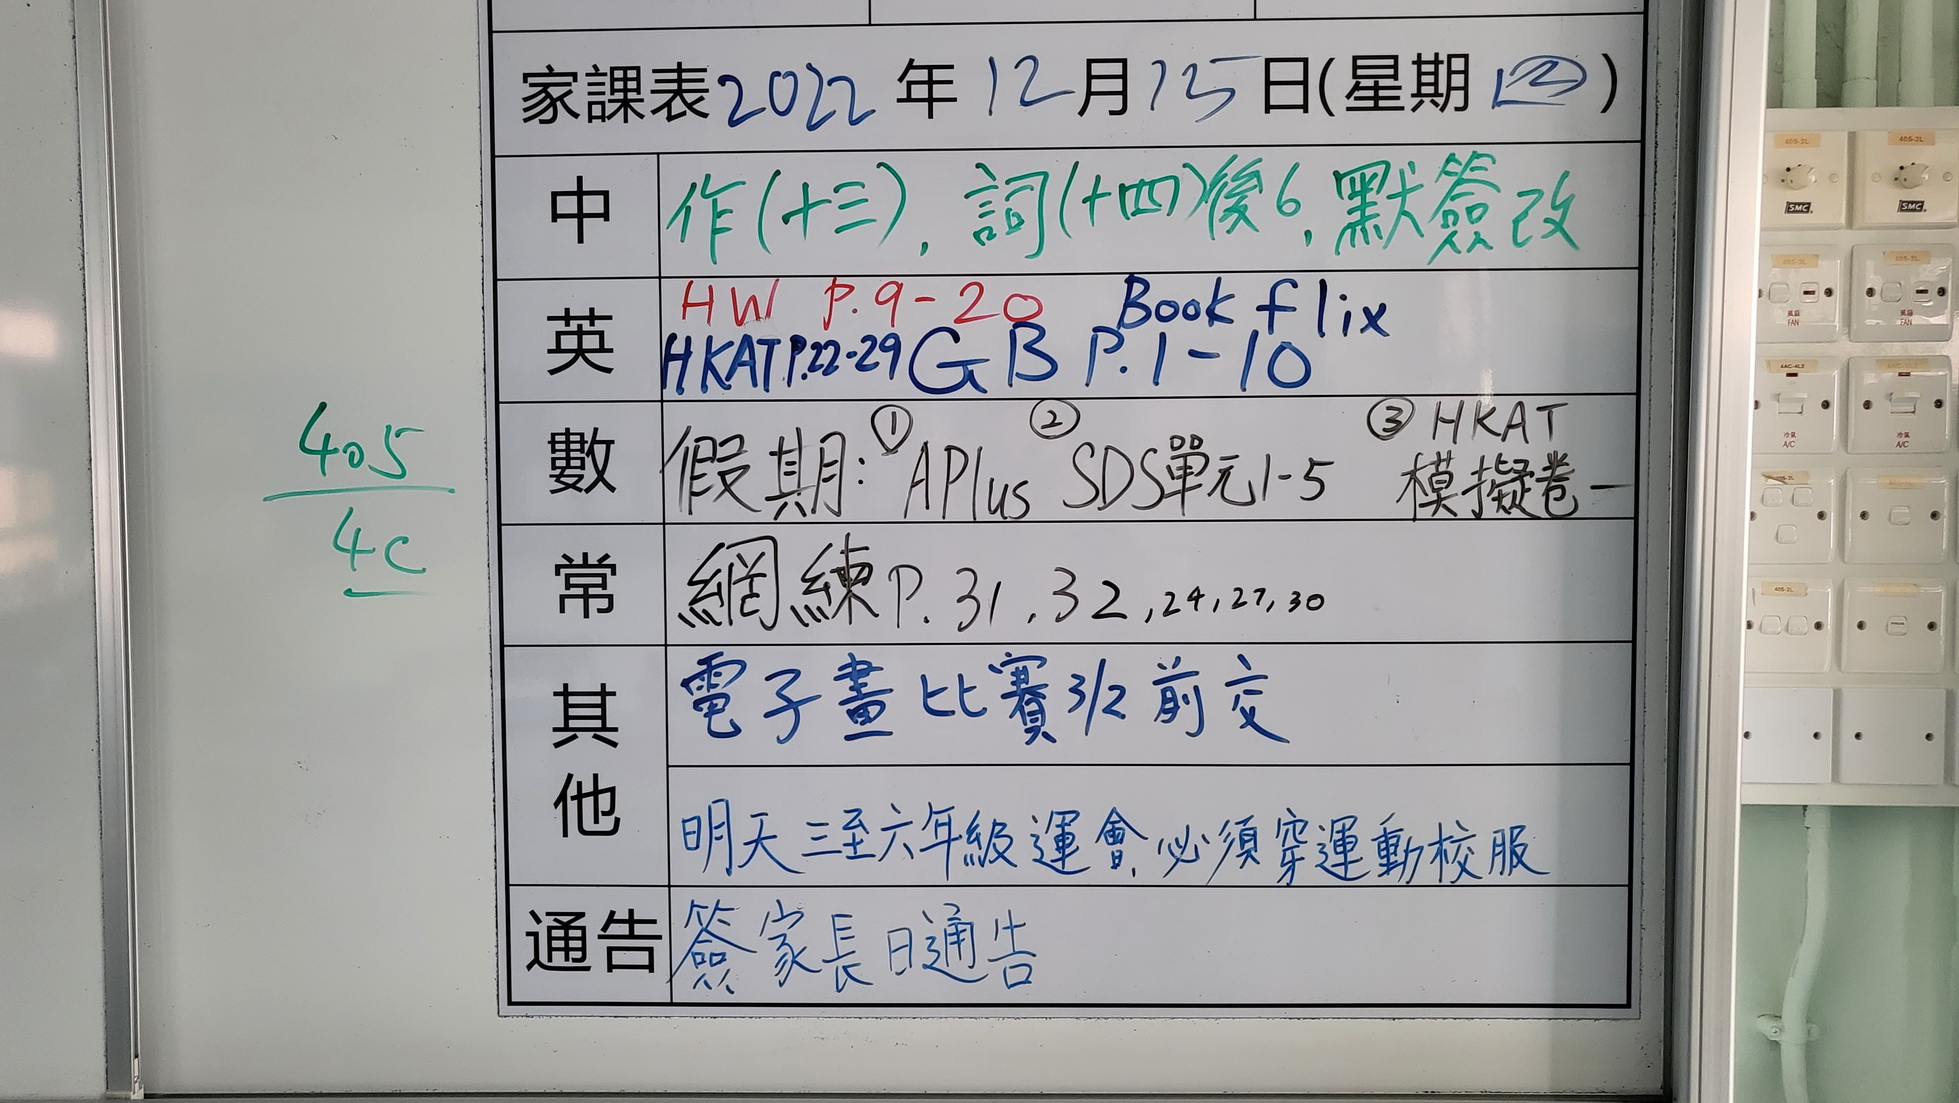 家課表2022年12月15日(星期四)
中 作(十三), 詞(十四)後6, 默簽改
英 HW P.9-20 Bookflix
HKAT P.22-29 GB P.1-10
數 假期: ① APlus ② SDS單元1-5 ③ HKAT
模擬卷一
405
4C
常 網練P.31,32,24,27,30
其他 電子畫比賽3/2前交
明天三至六年級運會,必須穿運動校服
通告 簽家長日通告
405-2L
405-2L
SMC
SMC
風扇
FAN
風扇
FAN
冷氣
A/C
冷氣
A/C
405-2L